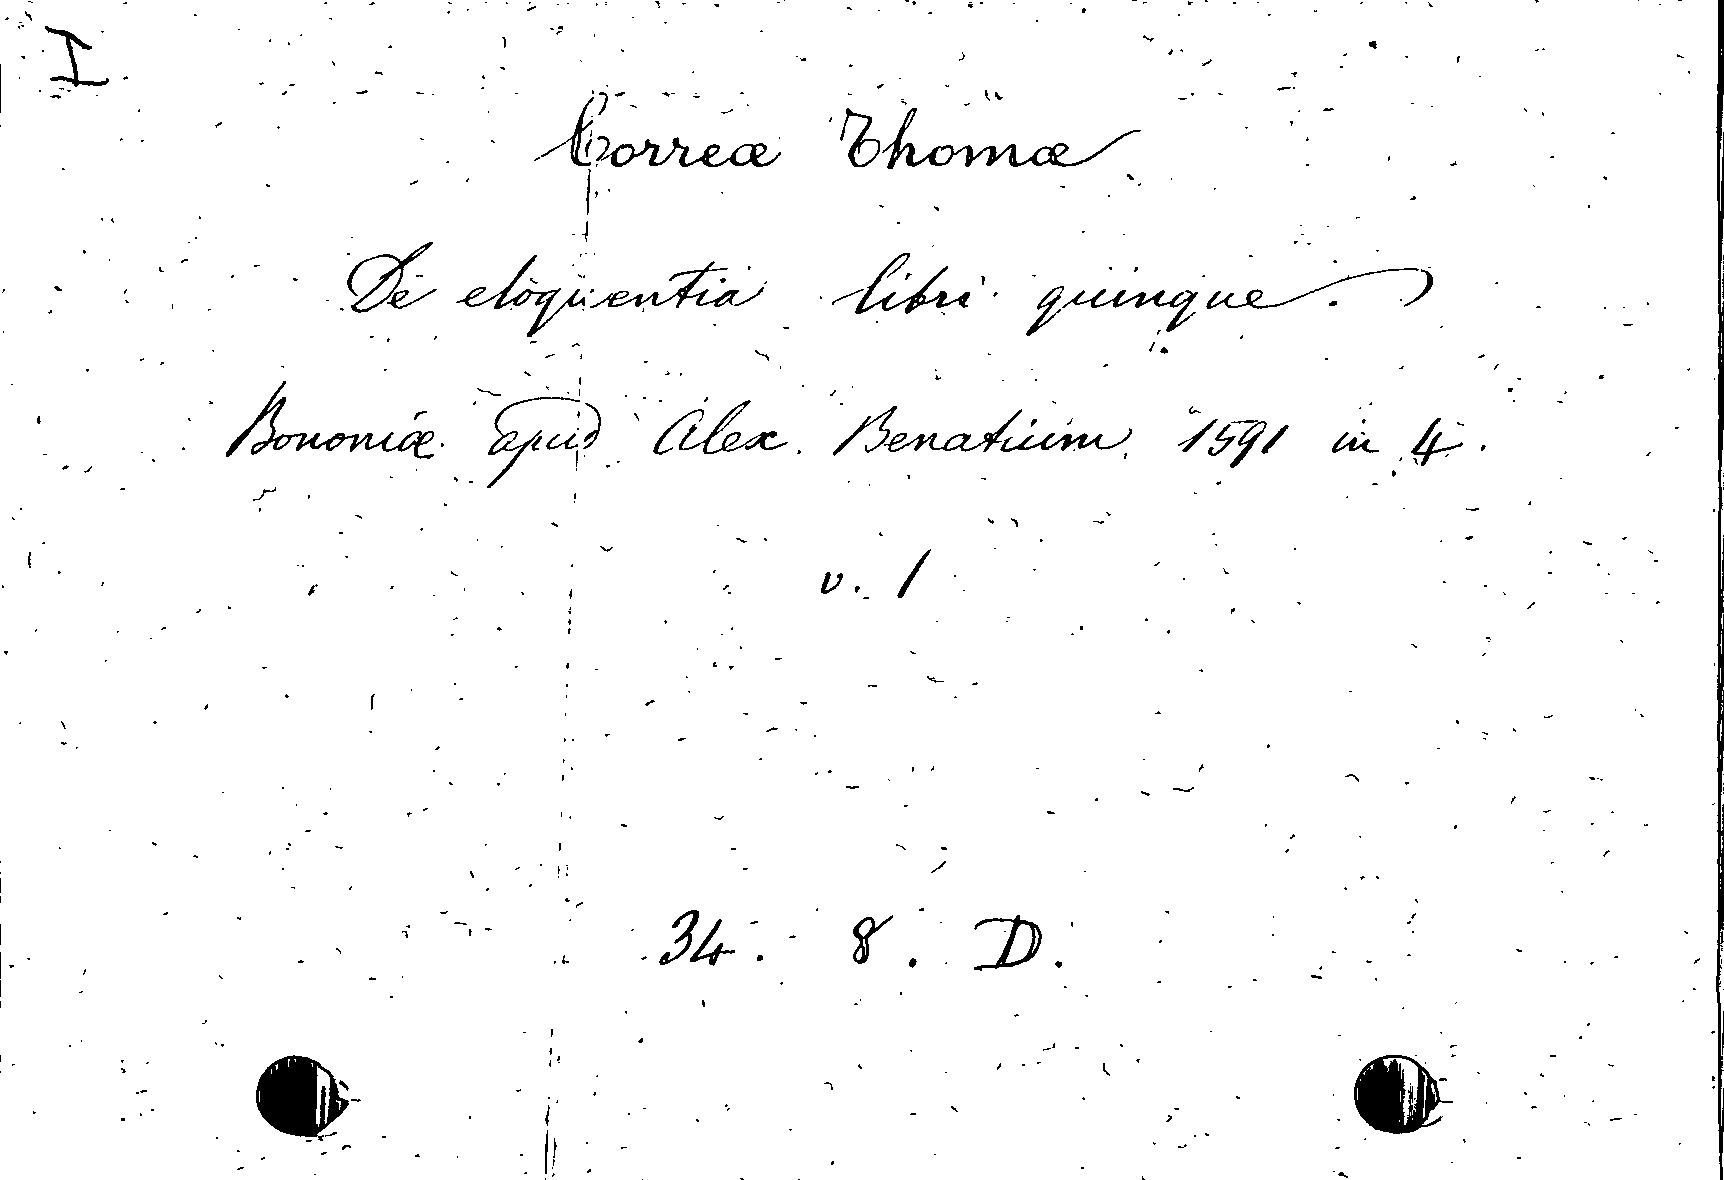 I
Correæ Thomæ
De eloquentia libri quinque.
Bononiæ apud Alex. Benatium 1591 in 4.
v. 1
34. 8. D.